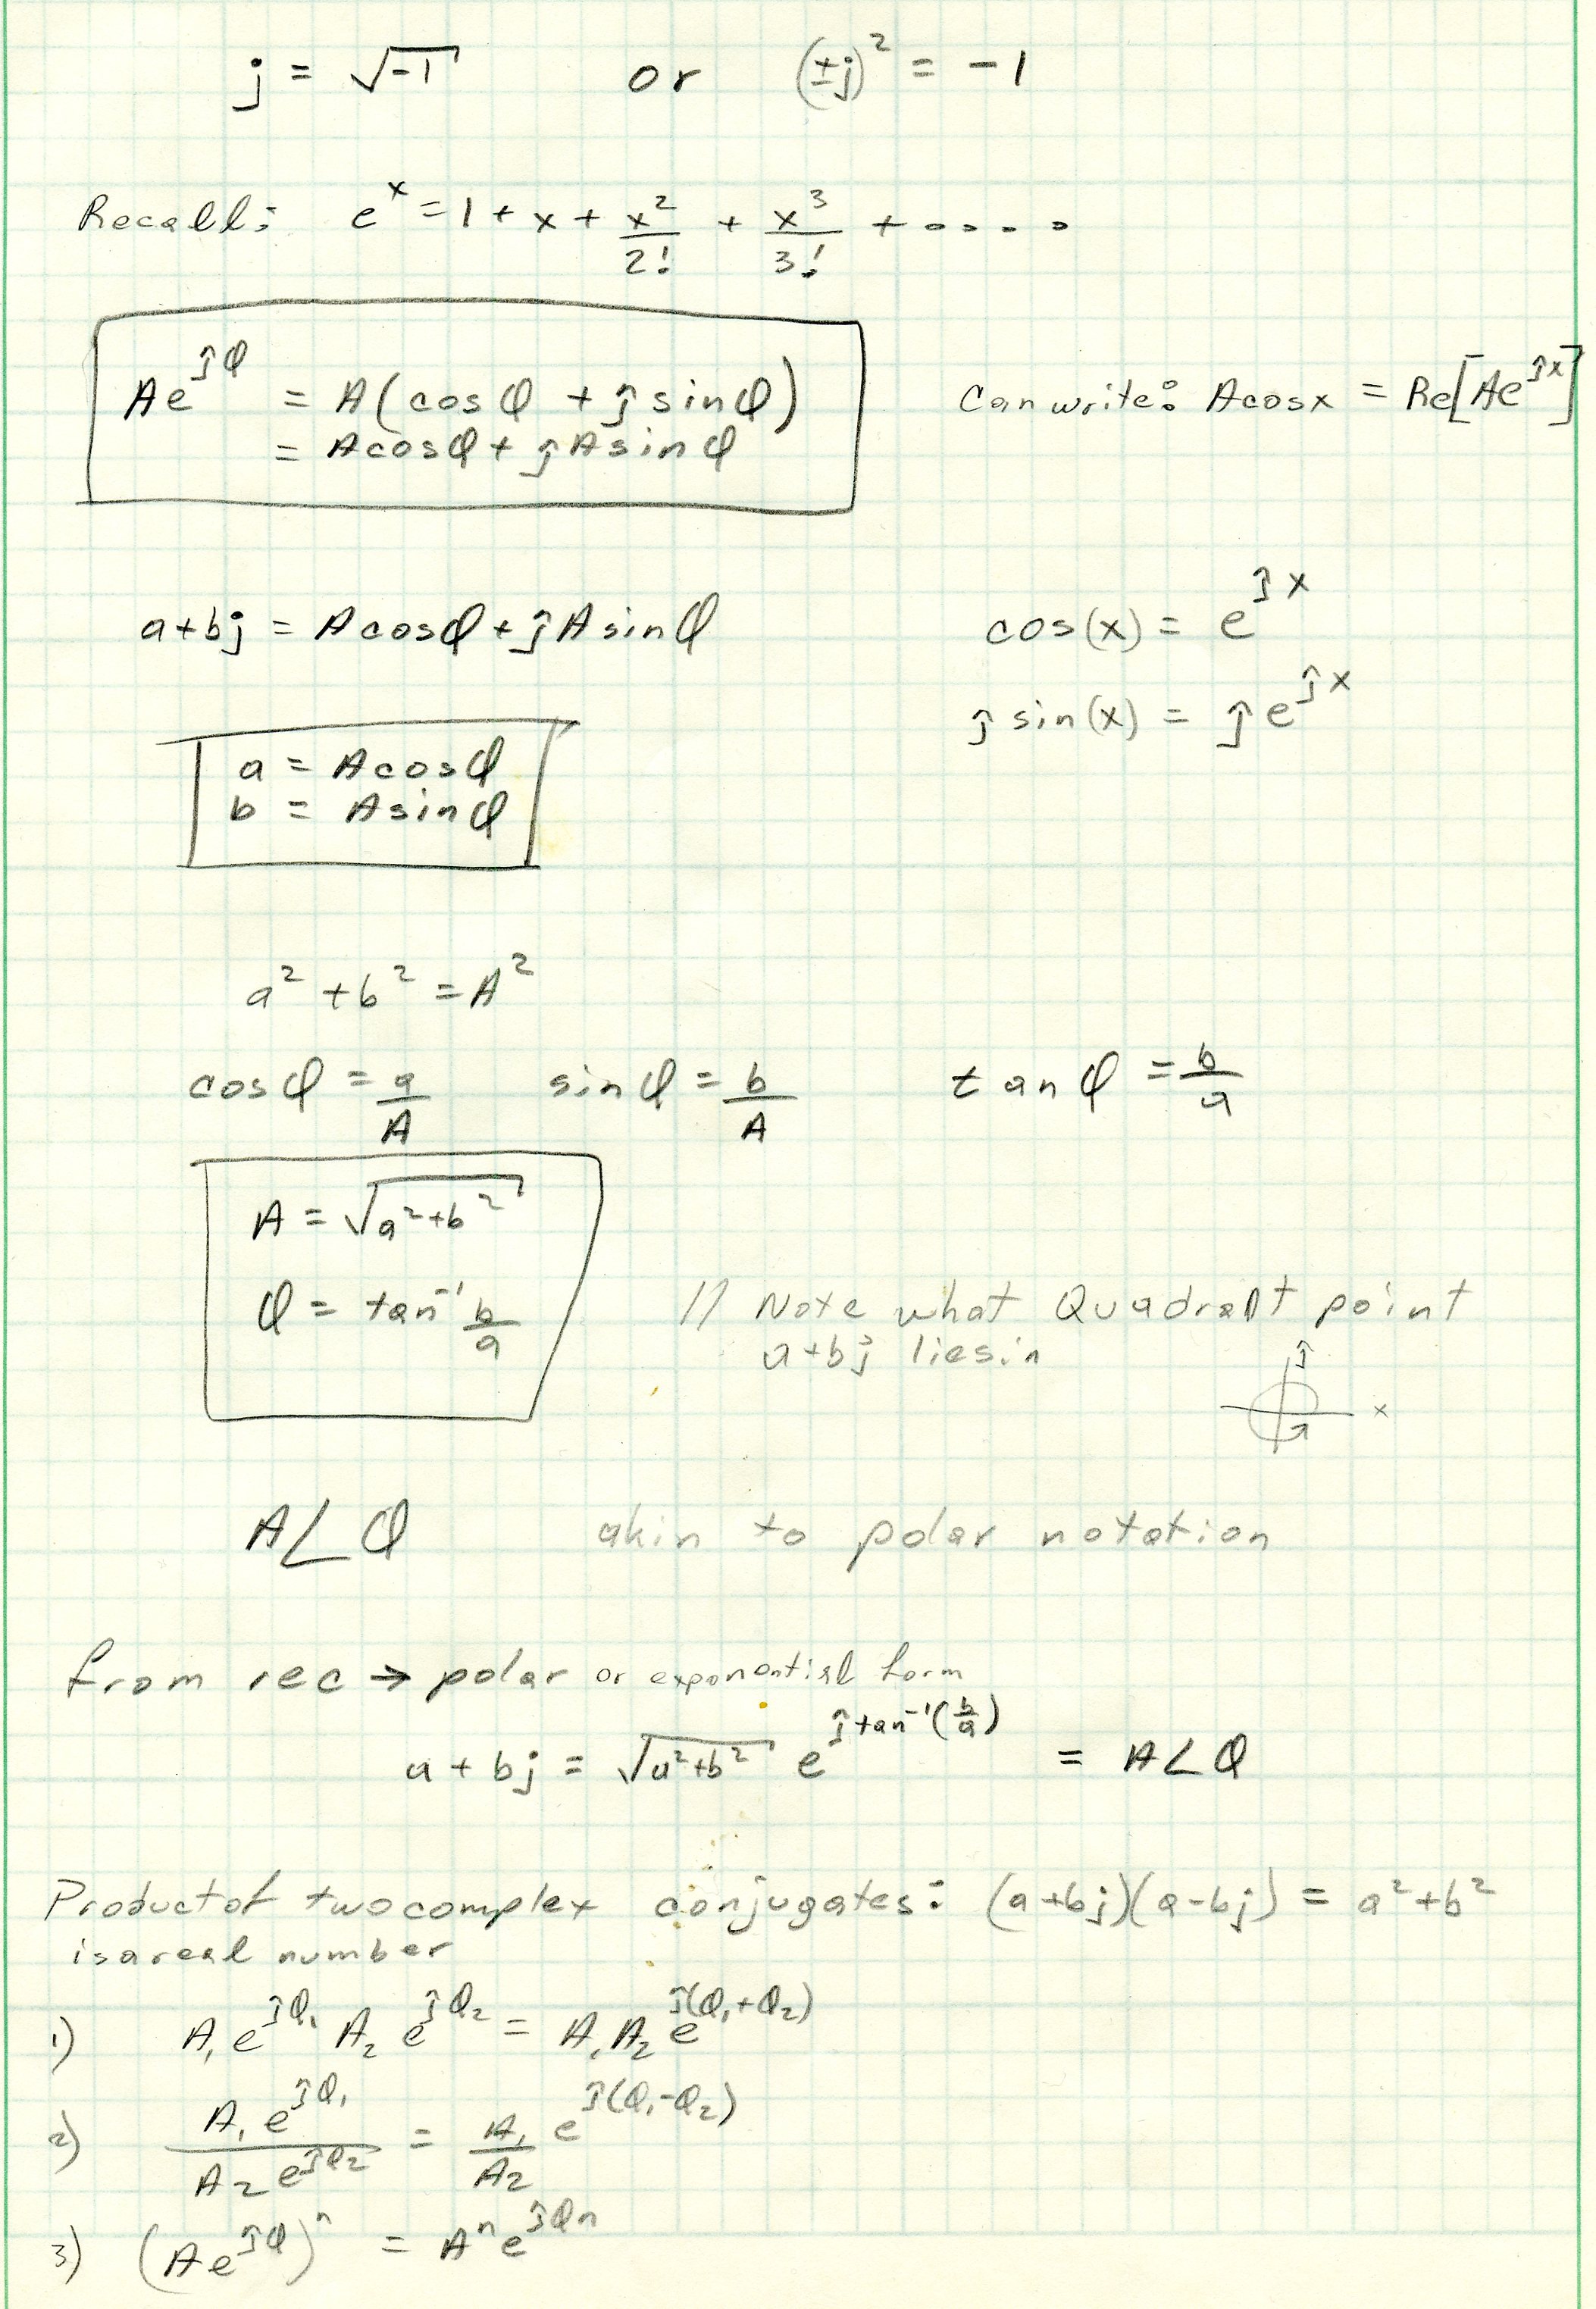 j = √-1   or   (±j)² = -1
Recall: e^x = 1 + x + x²/2! + x³/3! + ....
Ae^jφ = A(cosφ + j sinφ)
= Acosφ + jAsinφ
Can write: Acosx = Re[Ae^jx]
a+bj = Acosφ + jAsinφ
cos(x) = e^jx
j sin(x) = je^jx
a = Acosφ
b = Asinφ
a² + b² = A²
cosφ = a/A   sinφ = b/A   tanφ = b/a
A = √a²+b²
φ = tan⁻¹ b/a
// Note what Quadrant point
a+bj lies in
j
x
A∠φ   akin to polar notation
from rec → polar or exponential form
a + bj = √a²+b² e^j tan⁻¹(b/a) = A∠φ
Product of two complex conjugates: (a+bj)(a-bj) = a²+b²
is a real number
1) A₁e^jφ₁ A₂e^jφ₂ = A₁A₂e^j(φ₁+φ₂)
2) A₁e^jφ₁ / A₂e^jφ₂ = A₁/A₂ e^j(φ₁-φ₂)
3) (Ae^jφ)ⁿ = Aⁿe^jφn